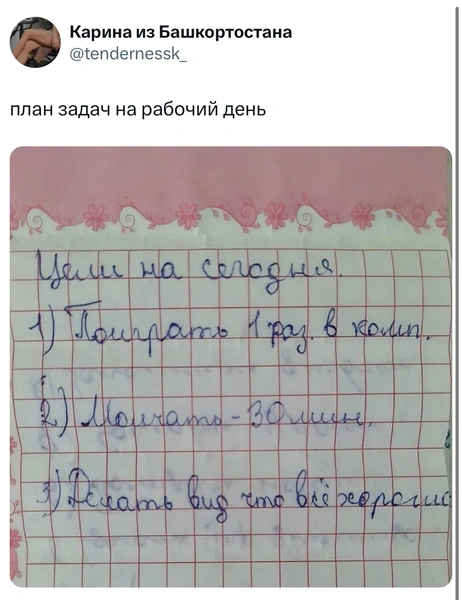 Карина из Башкортостана
@tendernessk_
план задач на рабочий день
Цели на сегодня.
1) Поиграть 1 раз. в комп.
2) Молчать - 30 мин.
3) Делать вид что всё хорошо